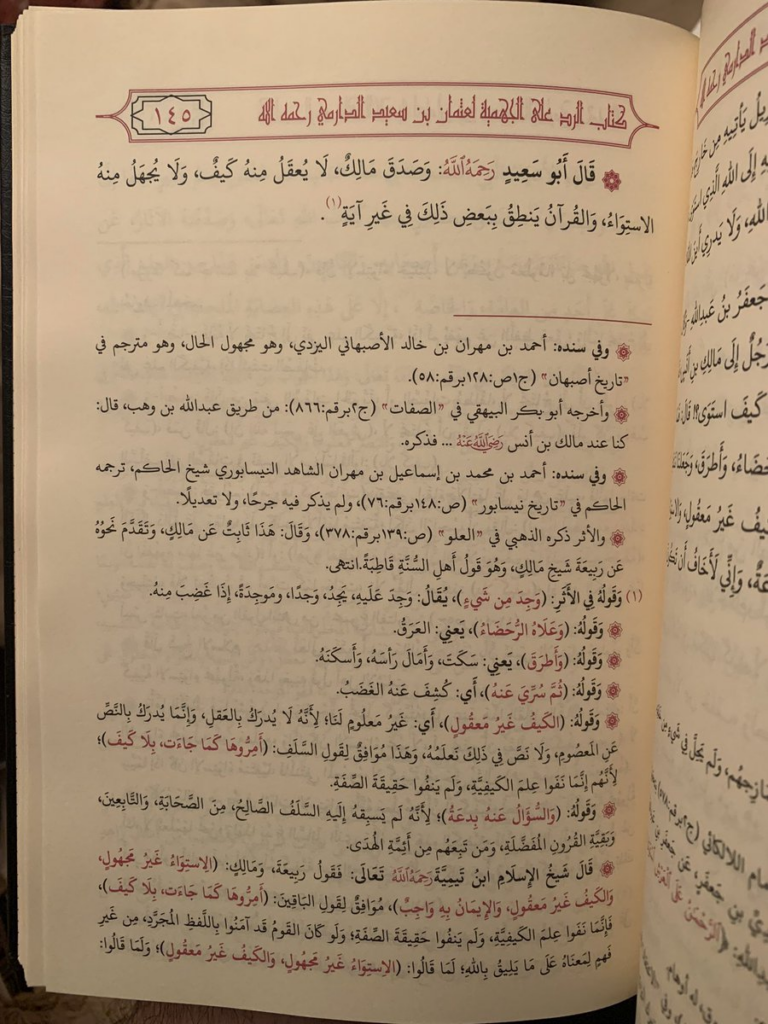 كتاب الرد على الجهمية لعثمان بن سعيد الدارمي رحمه الله
١٤٥
قَالَ أَبُو سَعِيدٍ رَحِمَهُ اللَّهُ: وَصَدَقَ مَالِكٌ، لَا يُعقَلُ مِنهُ كَيفٌ، وَلَا يُجهَلُ مِنهُ
الاستِوَاءُ، وَالقُرآنُ يَنطِقُ بِبَعضِ ذَلِكَ فِي غَيرِ آيَةٍ(١).
وفي سنده: أحمد بن مهران بن خالد الأصبهاني اليزدي، وهو مجهول الحال، وهو مترجم في
"تاريخ أصبهان" (ج١ص:١٢٨برقم:٥٨).
وأخرجه أبو بكر البيهقي في "الصفات" (ج٢برقم:٨٦٦): من طريق عبدالله بن وهب، قال:
كنا عند مالك بن أنس رَضِيَ اللَّهُ عَنْهُ ... فذكره.
وفي سنده: أحمد بن محمد بن إسماعيل بن مهران الشاهد النيسابوري شيخ الحاكم، ترجمه
الحاكم في "تاريخ نيسابور" (ص:١٤٨برقم:٧٦)، ولم يذكر فيه جرحًا، ولا تعديلًا.
والأثر ذكره الذهبي في "العلو" (ص:١٣٩برقم:٣٧٨)، وَقَالَ: هَذَا ثَابِتٌ عَن مَالِكٍ، وَتَقَدَّمَ نَحوُهُ
عَن رَبِيعَةَ شَيخِ مَالِكٍ، وَهُوَ قَولُ أَهلِ السُّنَّةِ قَاطِبَةً.انتهى.
(١) وَقَولُهُ فِي الأَثَرِ: (وَجِدَ مِن شَيءٍ)، يُقَالُ: وَجِدَ عَلَيهِ، يَجِدُ، وَجدًا، وَموجِدَةً، إِذَا غَضِبَ مِنهُ.
وَقَولُهُ: (وَعَلَاهُ الرُّحَضَاءُ)، يَعنِي: العَرَقُ.
وَقَولُهُ: (وَأَطرَقَ)، يَعنِي: سَكَتَ، وَأَمَالَ رَأسَهُ، وَأَسكَنَهُ.
وَقَولُهُ: (ثُمَّ سُرِّيَ عَنهُ)، أَي: كُشِفَ عَنهُ الغَضَبُ.
وَقَولُهُ: (الكَيفُ غَيرُ مَعقُولٍ)، أَي: غَيرُ مَعلُومٍ لَنَا؛ لِأَنَّهُ لَا يُدرَكُ بِالعَقلِ، وَإِنَّمَا يُدرَكُ بِالنَّصِّ
عَنِ المَعصُومِ، وَلَا نَصَّ فِي ذَلِكَ نَعلَمُهُ، وَهَذَا مُوَافِقٌ لِقَولِ السَّلَفِ: (أَمِرُّوهَا كَمَا جَاءَت، بِلَا كَيفَ)؛
لِأَنَّهُم إِنَّمَا نَفَوا عِلمَ الكَيفِيَّةِ، وَلَم يَنفُوا حَقِيقَةَ الصِّفَةِ.
وَقَولُهُ: (وَالسُّؤَالُ عَنهُ بِدعَةٌ)؛ لِأَنَّهُ لَم يَسبِقهُ إِلَيهِ السَّلَفُ الصَّالِحُ، مِنَ الصَّحَابَةِ، وَالتَّابِعِينَ،
وَبَقِيَّةِ القُرُونِ المُفَضَّلَةِ، وَمَن تَبِعَهُم مِن أَئِمَّةِ الهُدَى.
قَالَ شَيخُ الإِسلَامِ ابنُ تَيمِيَّةَ رَحِمَهُ اللَّهُ تَعَالَى: فَقَولُ رَبِيعَةَ، وَمَالِكٍ: (الِاستِوَاءُ غَيرُ مَجهُولٍ،
وَالكَيفُ غَيرُ مَعقُولٍ، وَالإِيمَانُ بِهِ وَاجِبٌ)، مُوَافِقٌ لِقَولِ البَاقِينَ: (أَمِرُّوهَا كَمَا جَاءَت، بِلَا كَيفَ)،
فَإِنَّمَا نَفَوا عِلمَ الكَيفِيَّةِ، وَلَم يَنفُوا حَقِيقَةَ الصِّفَةِ؛ وَلَو كَانَ القَومُ قَد آمَنُوا بِاللَّفظِ المُجَرَّدِ، مِن غَيرِ
فَهمٍ لِمَعنَاهُ عَلَى مَا يَلِيقُ بِاللهِ؛ لَمَا قَالُوا: (الِاستِوَاءُ غَيرُ مَجهُولٍ، وَالكَيفُ غَيرُ مَعقُولٍ)؛ وَلَمَا قَالُوا: